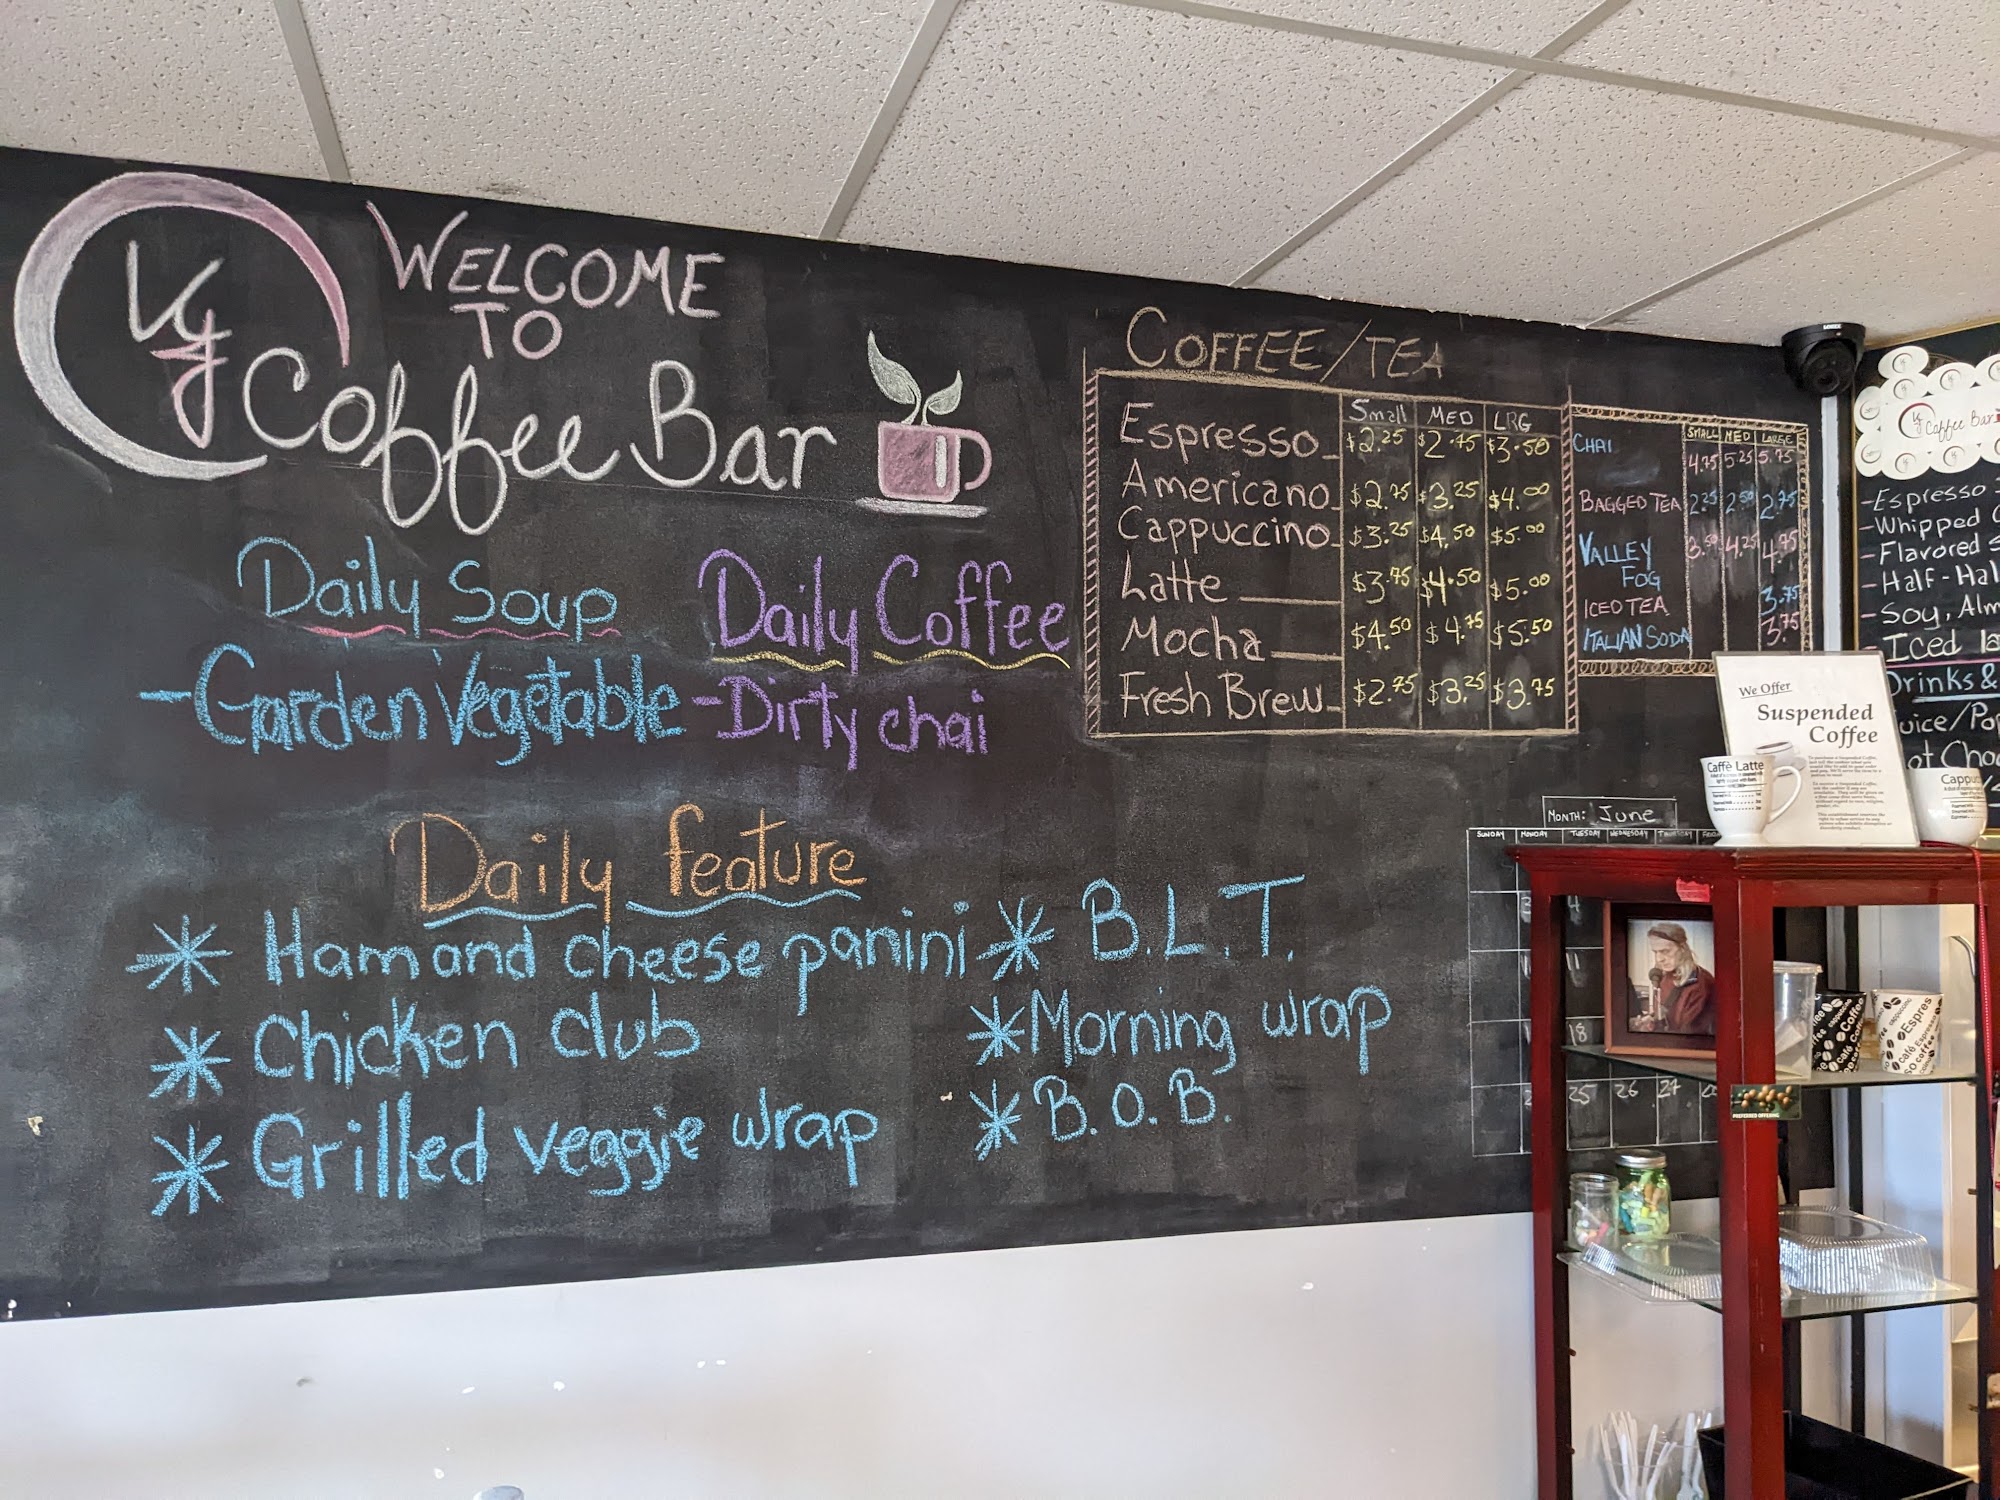 Vg
WELCOME
TO
Coffee Bar
Daily Soup
-Garden Vegetable
Daily Coffee
-Dirty chai
Daily feature
Ham and cheese panini
Chicken club
Grilled veggie wrap
B.L.T.
Morning wrap
B.O.B.
COFFEE/TEA
Small MED LRG
Espresso $2.25 $2.45 $3.50
Americano $2.75 $3.25 $4.00
Cappuccino $3.25 $4.50 $5.00
Latte $3.75 $4.50 $5.00
Mocha $4.50 $4.75 $5.50
Fresh Brew $2.75 $3.25 $3.75
SMALL MED LARGE
CHAI 4.75 5.25 5.75
BAGGED TEA 2.25 2.50 2.75
VALLEY FOG 3.50 4.25 4.75
ICED TEA 3.75
ITALIAN SODA 3.75
Vg Coffee Bar
-Espresso
-Whipped
-Flavored
-Half-Hal
-Soy, Alm
-Iced la
Drinks &
uice/Pop
ot Choc
We Offer
Suspended
Coffee
Caffè Latte
Cappuc
MONTH: June
SUNDAY MONDAY TUESDAY WEDNESDAY THURSDAY
4
11
18
25 26 27
PREFERRED OFFERING